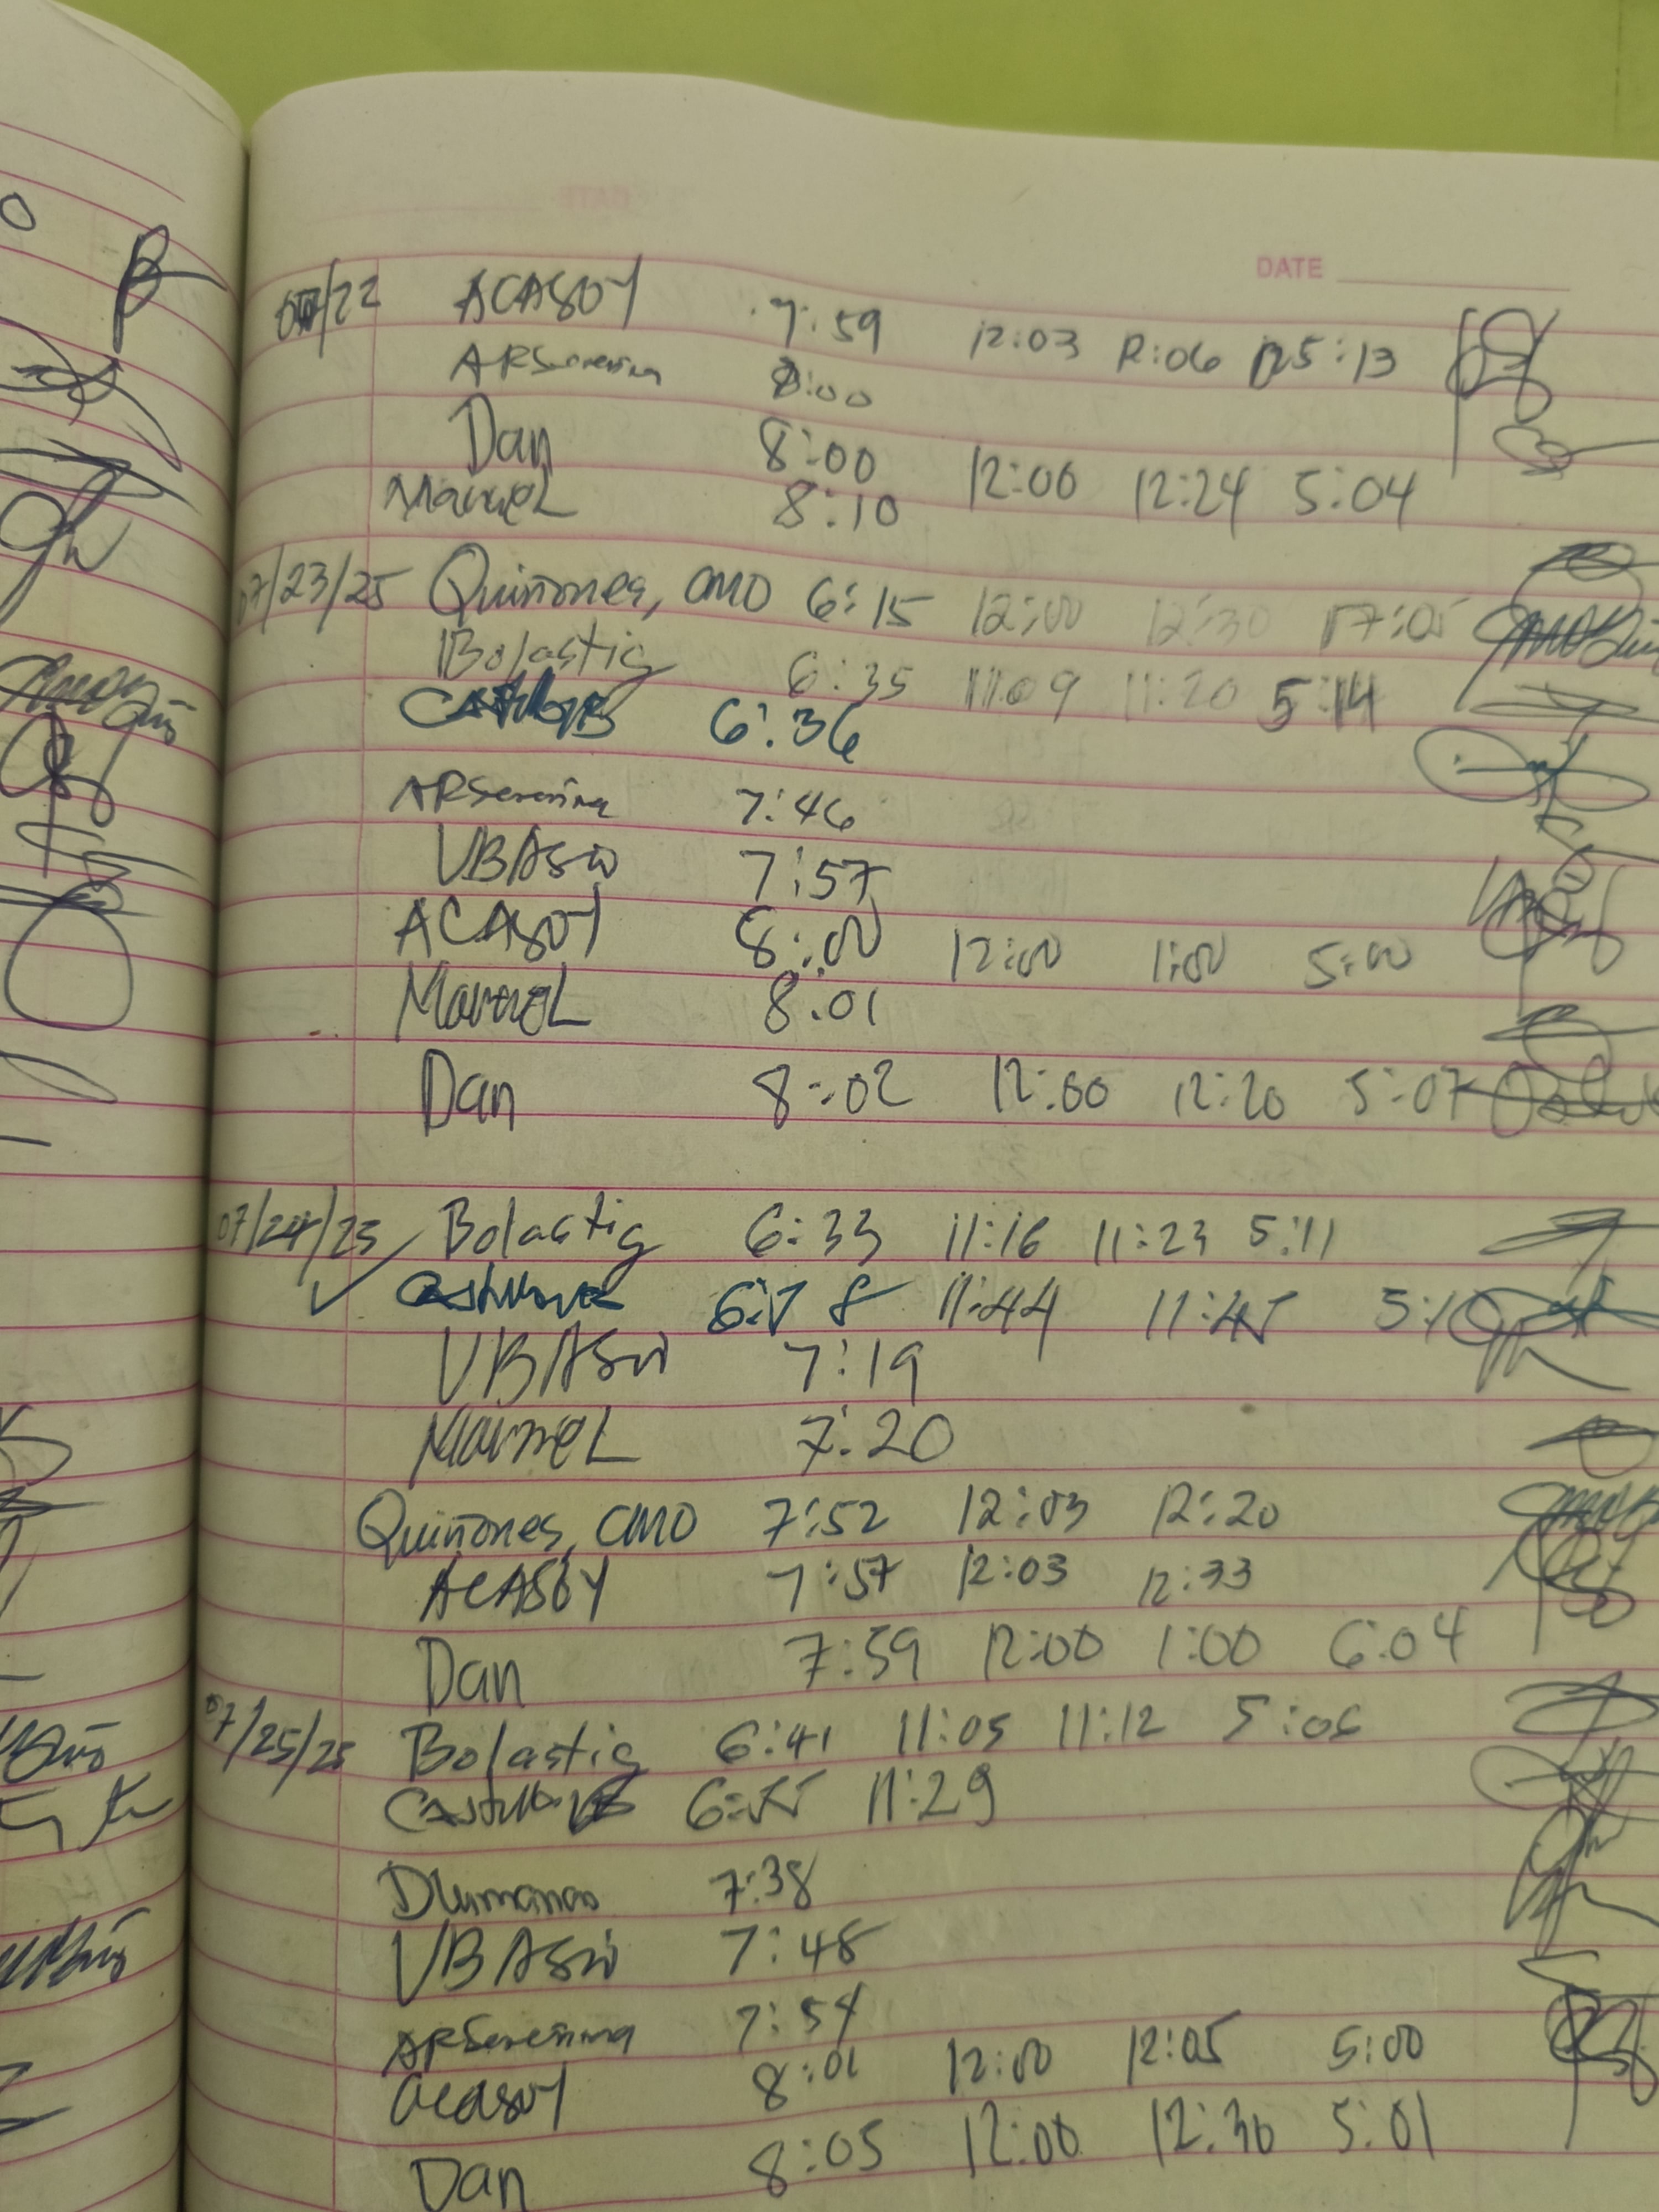 DATE
07/22 ACASOY 7:59 12:03 12:06 5:13
ARSerenina 8:00
Dan 8:00 12:00 12:24 5:04
Manuel 8:10
07/23/25 Quiñones, CMO 6:15 12:00 12:30 17:05
Bolastig 6:35 11:09 11:20 5:14
6:36
ARSerenina 7:46
VBAsio 7:57
ACASOY 8:00 12:00 1:00 5:00
Manuel 8:01
Dan 8:02 12:00 12:20 5:07
07/24/25 Bolastig 6:33 11:16 11:23 5:11
11:44 11:45
VBASio 7:19
Manuel 7:20
Quiñones, CMO 7:52 12:03 12:20
ACASOY 7:57 12:03 12:33
Dan 7:59 12:00 1:00 6:04
07/25/25 Bolastig 6:41 11:05 11:12 5:06
11:29
Dlumanao 7:38
VBASio 7:48
ARSerenina 7:54
acasoy 8:01 12:00 12:05 5:00
Dan 8:05 12:00 12:30 5:01